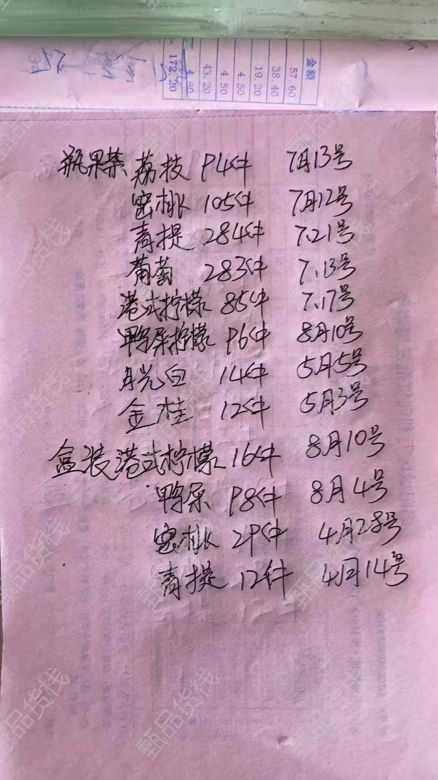 金额
57.60
38.40
19.20
4.50
4.50
43.20
4.80
172.20
瓶果茶 荔枝 94件 7月13号
密桃 105件 7月12号
青提 284件 7.21号
葡萄 283件 7.13号
港式柠檬 85件 7.17号
鸭屎柠檬 96件 8月10号
月光白 14件 5月5号
金桂 12件 5月3号
盒装港式柠檬 16件 8月10号
鸭屎 98件 8月4号
密桃 29件 4月28号
青提 12件 4月14号
甄品货栈